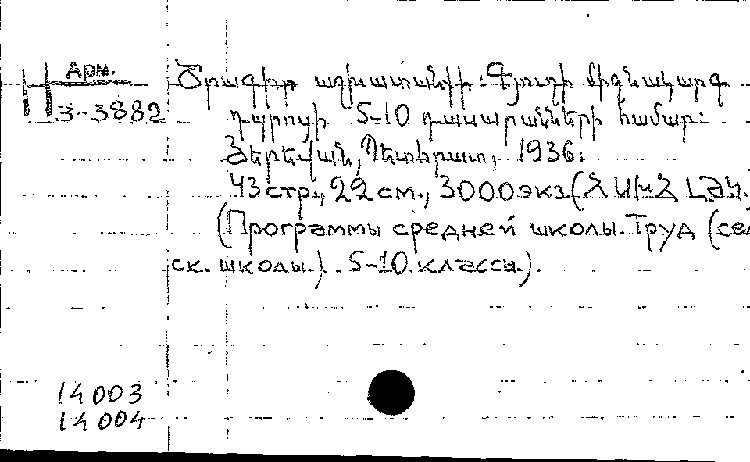 Арм.
3-3882
Ծրագիր աշխատանքի: Գյուղի միջնակարգ
դպրոցի 5-10 դասարանների համար:
Յերեվան, Պետհրատ, 1936:
43 стр., 22 см., 3000 экз.(ՀԽՍՀ ԼԺԿ.
(Программы средней школы. Труд (сел
ск. школы.). 5-10 классы.).
14003
14004